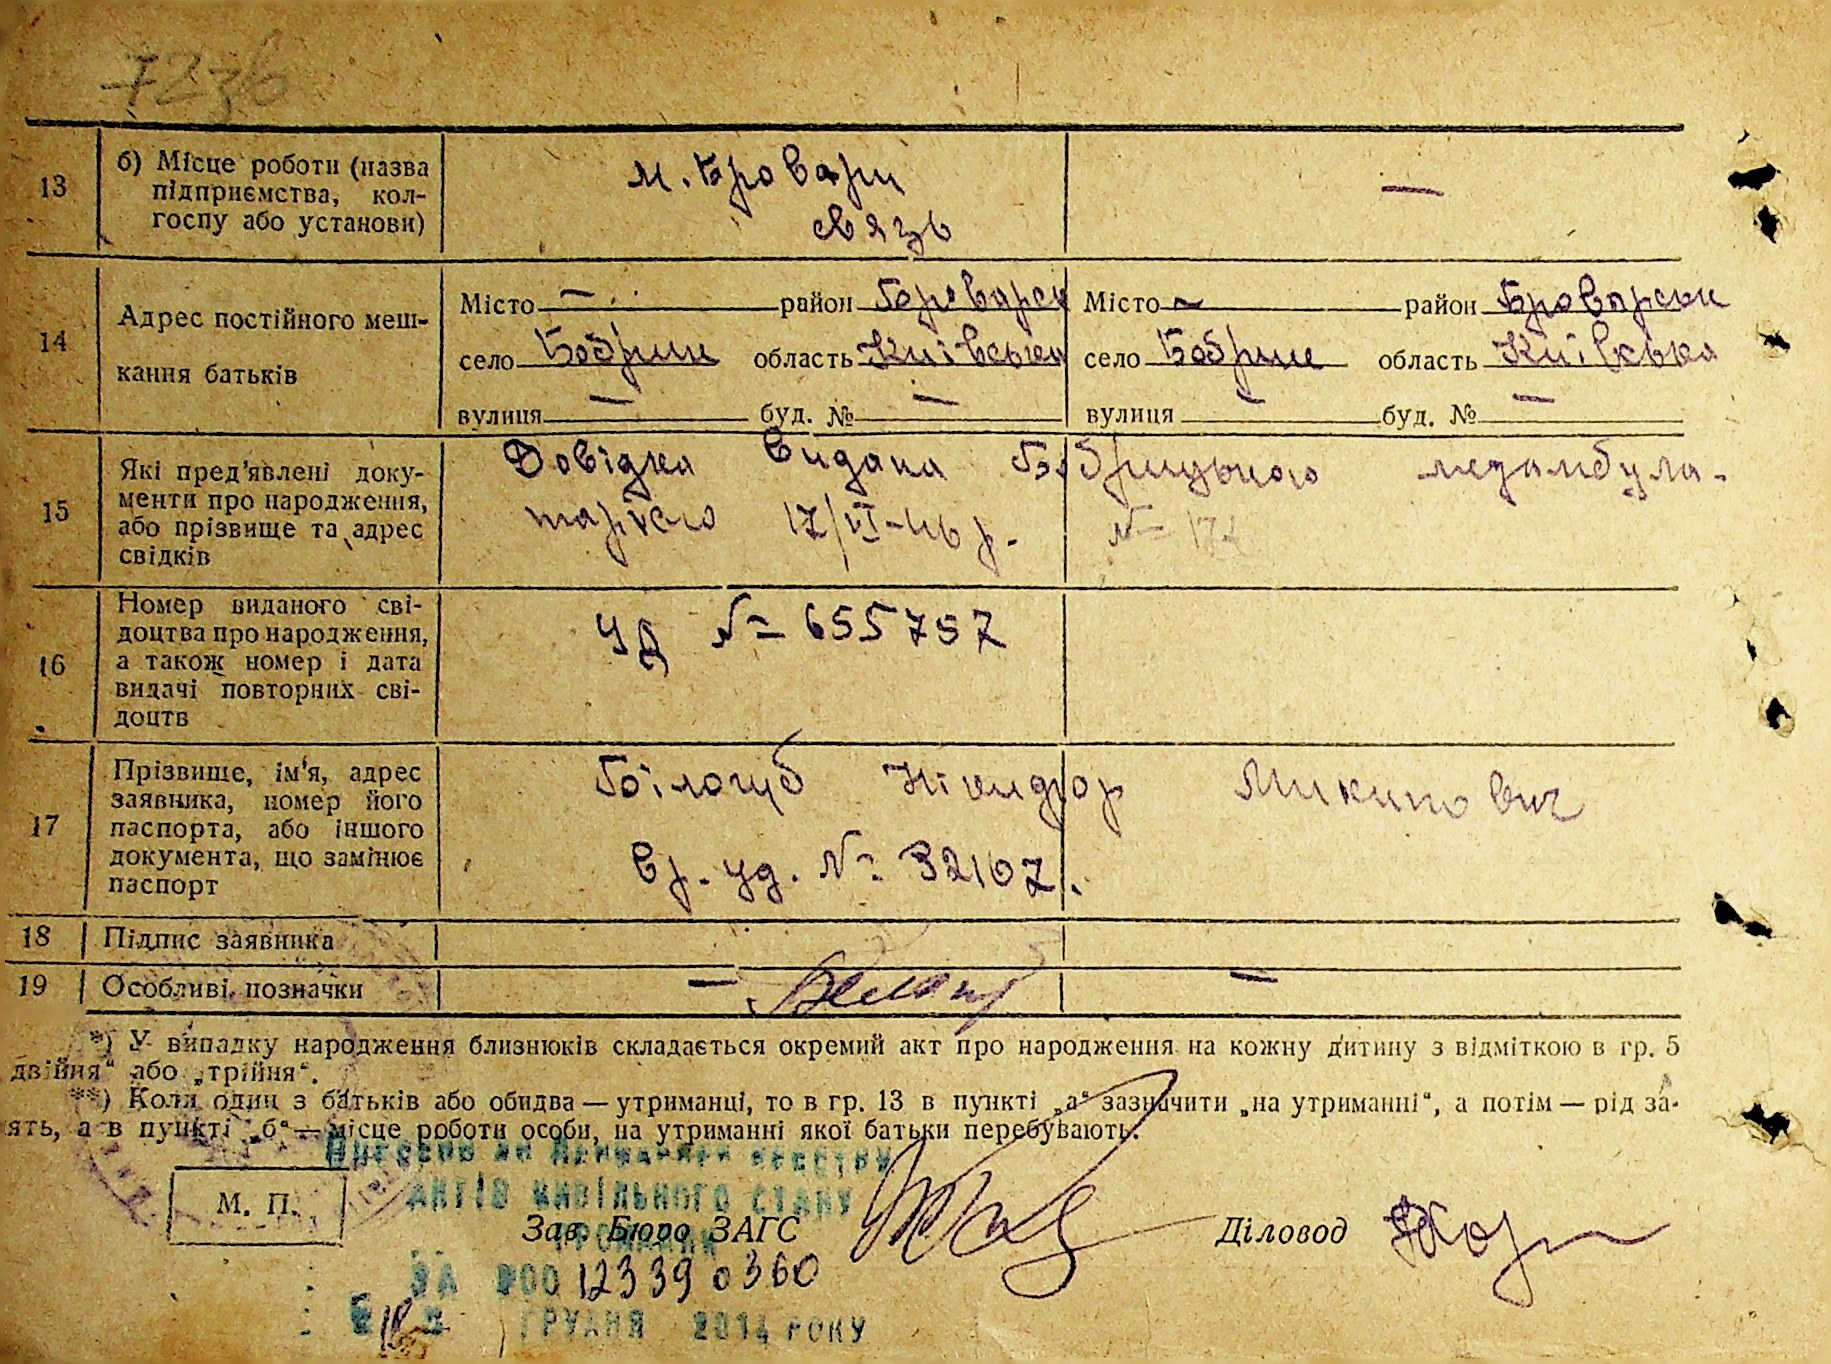 7236
13 б) Місце роботи (назва підприємства, колгоспу або установи) м. Бровари —
связь
14 Адрес постійного мешкання батьків
Місто — район Броварськ Місто — район Броварськ
село Бобрик область Київська село Бобрик область Київська
вулиця — буд. № — вулиця — буд. № —
15 Які пред'явлені документи про народження, або прізвище та адрес свідків
Довідка видана Бобрицькою медамбула-
торією 17/VI-46 р. № 172
16 Номер виданого свідоцтва про народження, а також номер і дата видачі повторних свідоцтв
УД № 655757
17 Прізвище, ім'я, адрес заявника, номер його паспорта, або іншого документа, що замінює паспорт
Білогуб Никидфор Микитович
вр. уд. № 32107.
18 Підпис заявника
19 Особливі позначки — —
*) У випадку народження близнюків складається окремий акт про народження на кожну дитину з відміткою в гр. 5
двійня“ або „трійня“.
**) Коли один з батьків або обидва — утриманці, то в гр. 13 в пункті „а“ зазначити „на утриманні“, а потім — рід за-
ять, а в пункті „б“ — місце роботи особи, на утриманні якої батьки перебувають.
до Державного реєстру
актів цивільного стану
М. П.
Зав. Бюро ЗАГС Діловод
громадян
ЗА №00123390360
ГРУДНЯ 2014 РОКУ